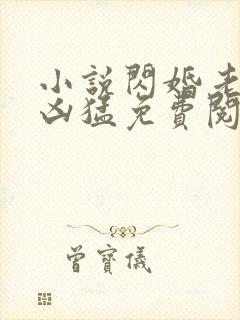 小說閃婚老
凶猛免費閱
曾寶儀